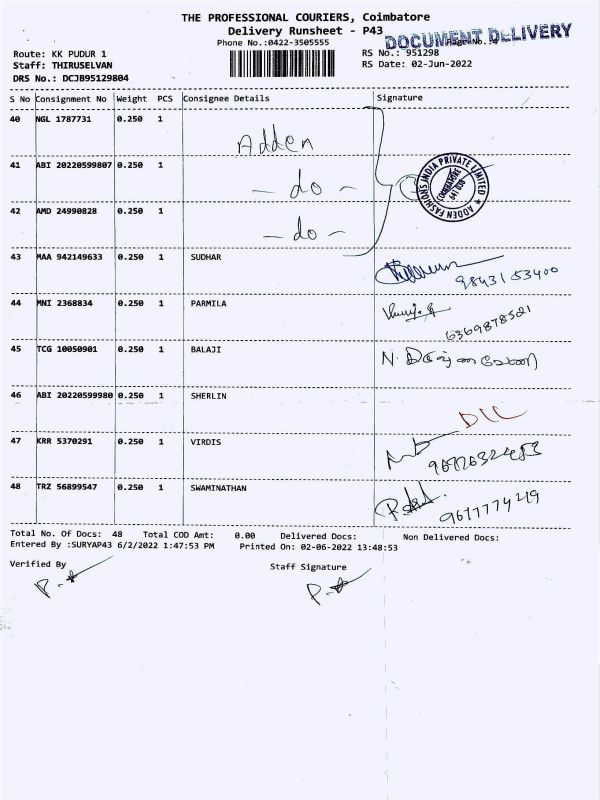 THE PROFESSIONAL COURIERS, Coimbatore
Delivery Runsheet - P43
Phone No.:0422-3505555
DOCUMENT DELIVERY
Page No.:4
Route: KK PUDUR 1
RS No.: 951298
Staff: THIRUSELVAN
RS Date: 02-Jun-2022
DRS No.: DCJB95129804
S No Consignment No Weight PCS Consignee Details Signature
40 NGL 1787731 0.250 1 Adden
41 ABI 20220599807 0.250 1 - do -
ADDEN FASHIONS INDIA PRIVATE LIMITED ★
COIMBATORE
641 038
42 AMD 24990828 0.250 1 - do -
43 MAA 942149633 0.250 1 SUDHAR
98431 53400
44 MNI 2368834 0.250 1 PARMILA
6369878521
45 TCG 10050901 0.250 1 BALAJI N.
46 ABI 20220599980 0.250 1 SHERLIN
47 KRR 5370291 0.250 1 VIRDIS
48 TRZ 56899547 0.250 1 SWAMINATHAN
9677774219
Total No. Of Docs: 48 Total COD Amt: 0.00 Delivered Docs: Non Delivered Docs:
Entered By :SURYAP43 6/2/2022 1:47:53 PM Printed On: 02-06-2022 13:48:53
Verified By Staff Signature